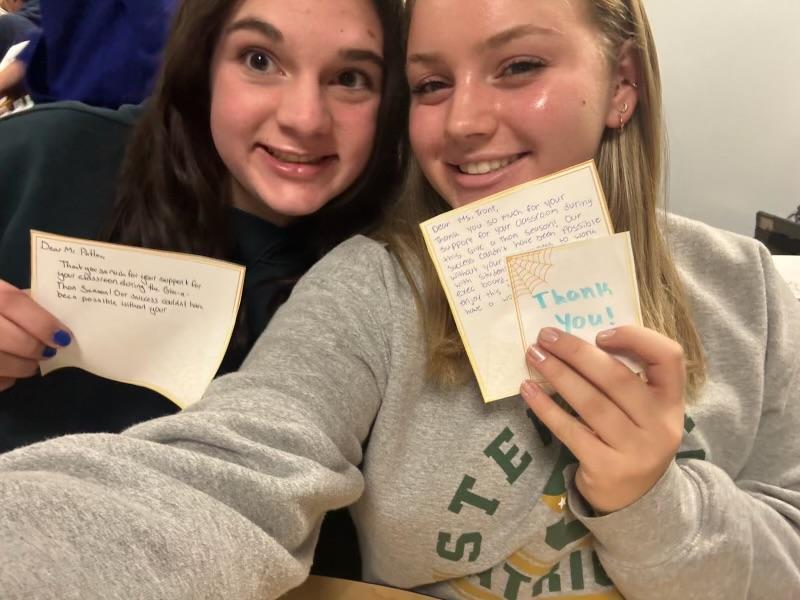 Dear Mr. Patten,
Thank you so much for your support for
your classroom during the Give-a-
Thon Season! Our success couldn't have
been possible without your
Dear Ms. Trant,
Thank you so much for your
support for your classroom during
this Give a Thon season! Our
success couldn't have been possible
without your to work
with studen
exec board
enjoy this
have a w
Thank
You!
STE
TRI